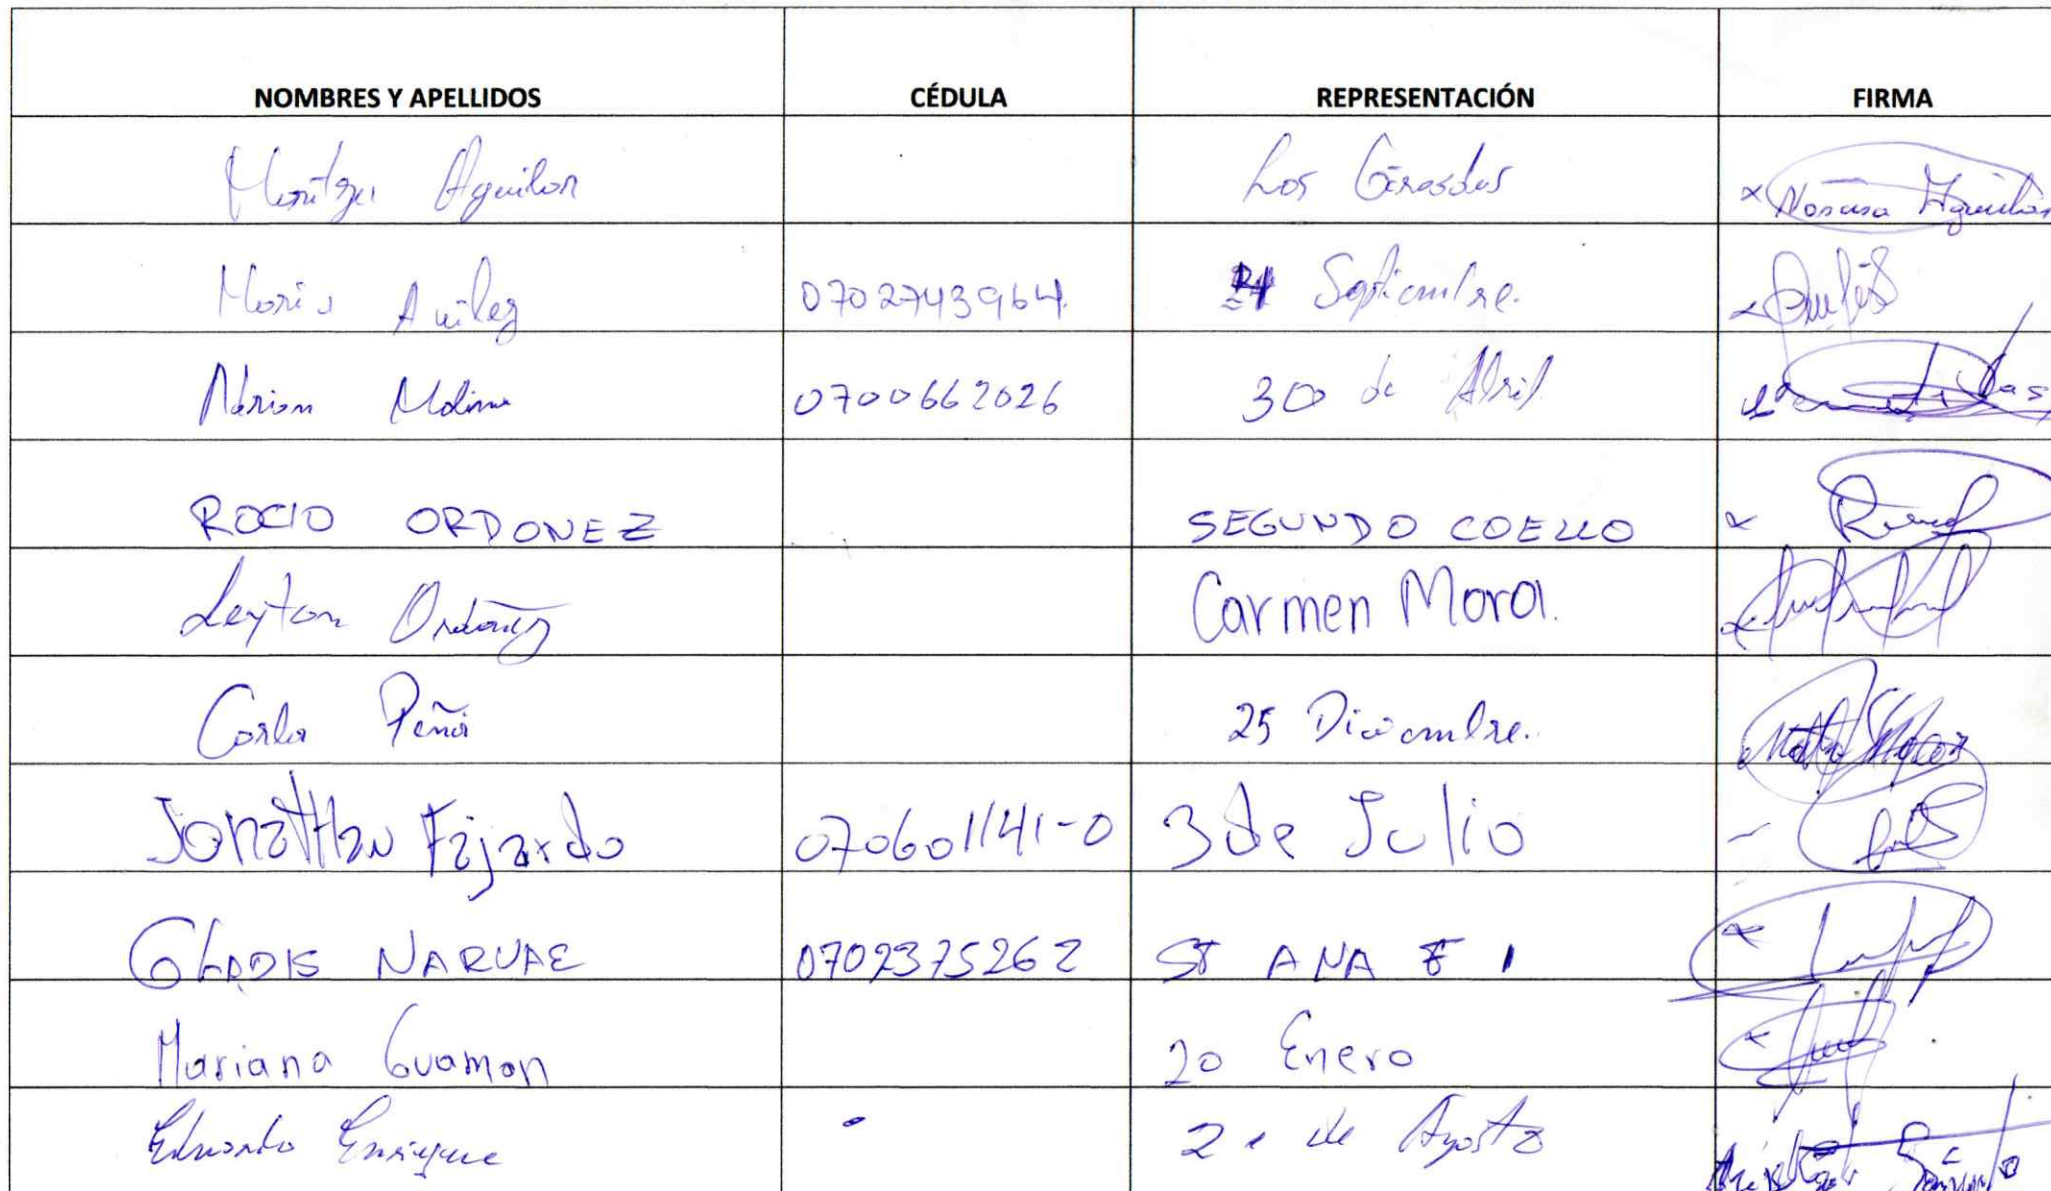 NOMBRES Y APELLIDOS CÉDULA REPRESENTACIÓN FIRMA
Maritza Aguilar Los
Maria Aviles 0702743964. Septiembre.
Marion Molina 0700662026 30 de Abril
ROCIO ORDONEZ SEGUNDO COELLO
Leyton Ordoñez Carmen Mora.
Carla Peña 25 Diciembre.
Jonatthan Fajardo 070601141-0 3 de Julio
GLADIS NARVAE 0702375262 ST ANA 1
Mariana Guaman 20 Enero
Eduardo Enrique de Agosto